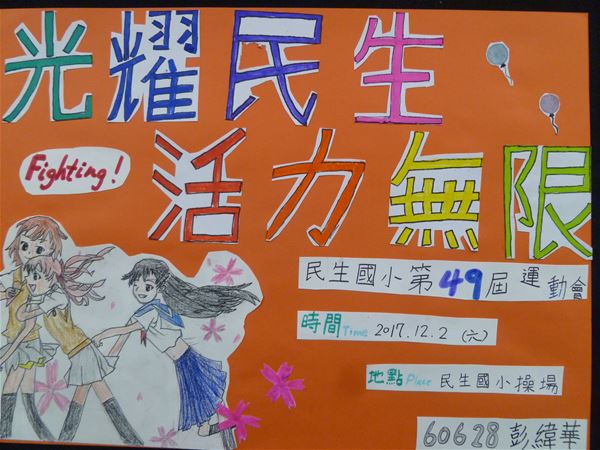 光耀民生
活力無限
Fighting!
民生國小第49屆運動會
時間Time 2017.12.2 (六)
地點Place 民生國小操場
60628彭緯華